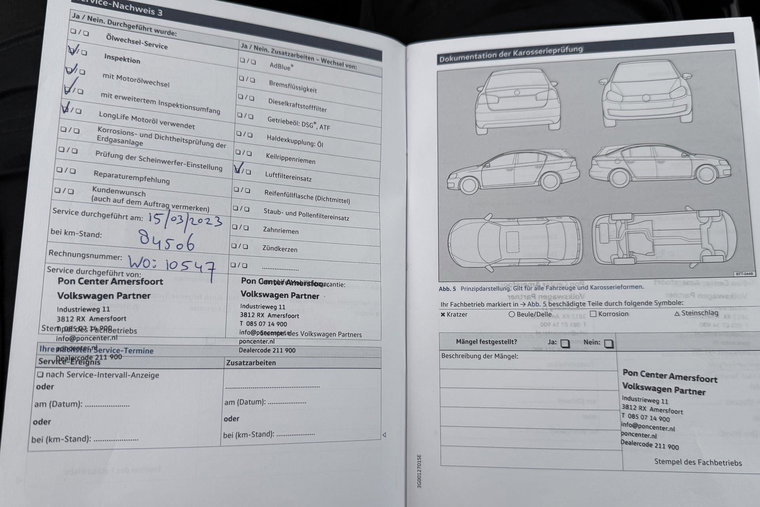 Service-Nachweis 3
Ja / Nein. Durchgeführt wurde:
Ölwechsel-Service
Inspektion
mit Motorölwechsel
mit erweitertem Inspektionsumfang
LongLife Motoröl verwendet
Korrosions- und Dichtheitsprüfung der
Erdgasanlage
Prüfung der Scheinwerfer-Einstellung
Reparaturempfehlung
Kundenwunsch
(auch auf dem Auftrag vermerken)
Service durchgeführt am: 15/03/2023
bei km-Stand: 84506
Rechnungsnummer: WO: 10547
Service durchgeführt von:
Pon Center Amersfoort
Volkswagen Partner
Industrieweg 11
3812 RX Amersfoort
T 085 07 14 900
info@poncenter.nl
poncenter.nl
Dealercode 211 900
Ja / Nein. Zusatzarbeiten – Wechsel von:
AdBlue®
Bremsflüssigkeit
Dieselkraftstofffilter
Getriebeöl: DSG®, ATF
Haldexkupplung: Öl
Keilrippenriemen
Luftfiltereinsatz
Reifenfüllflasche (Dichtmittel)
Staub- und Pollenfiltereinsatz
Zahnriemen
Zündkerzen
Pon Center Amersfoort
Volkswagen Partner
Industrieweg 11
3812 RX Amersfoort
T 085 07 14 900
Stempel des Volkswagen Partners
poncenter.nl
Dealercode 211 900
Ihre nächsten Service-Termine
Service-Ereignis
nach Service-Intervall-Anzeige
oder
am (Datum): ....................
oder
bei (km-Stand): ....................
Zusatzarbeiten
am (Datum): ....................
oder
bei (km-Stand): ....................
Dokumentation der Karosserieprüfung
Abb. 5 Prinzipdarstellung. Gilt für alle Fahrzeuge und Karosserieformen.
Ihr Fachbetrieb markiert in → Abb. 5 beschädigte Teile durch folgende Symbole:
✖ Kratzer ○ Beule/Delle □ Korrosion △ Steinschlag
Mängel festgestellt? Ja: Nein:
Beschreibung der Mängel:
Pon Center Amersfoort
Volkswagen Partner
Industrieweg 11
3812 RX Amersfoort
T 085 07 14 900
info@poncenter.nl
poncenter.nl
Dealercode 211 900
Stempel des Fachbetriebs
3G0012701SE